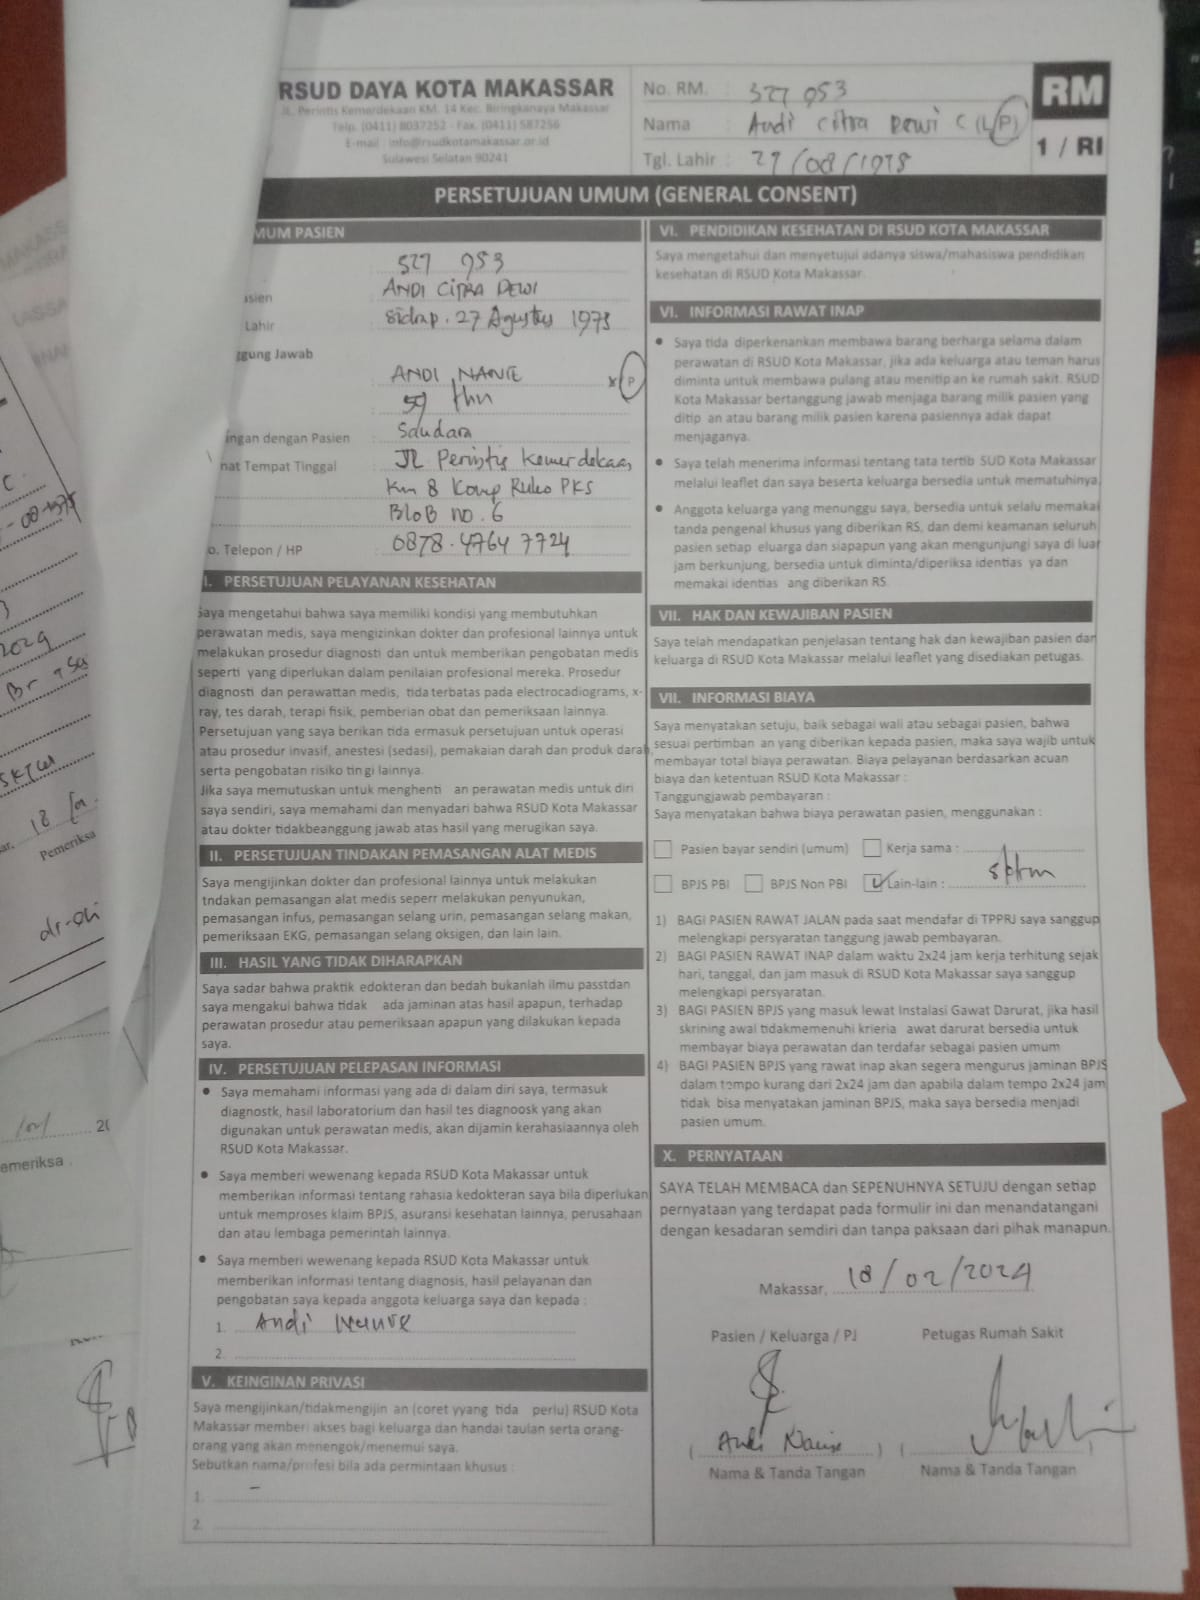 RSUD DAYA KOTA MAKASSAR
JL. Perintis Kemerdekaan KM. 14 Kec. Biringkanaya Makassar
Telp. (0411) 8037252 - Fax. (0411) 587256
E-mail : info@rsudkotamakassar.or.id
Sulawesi Selatan 90241
No. RM. : 527 953
Nama : Andi Citra Dewi C (L/P)
Tgl. Lahir : 27/08/1978
RM
1 / RI
PERSETUJUAN UMUM (GENERAL CONSENT)
MUM PASIEN
: 527 953
asien : ANDI CITRA DEWI
Lahir : Sidrap. 27 Agustus 1978
ggung Jawab
: ANDI NANCE P
: 59 thn
ingan dengan Pasien : Saudara
nat Tempat Tinggal : JL Perintis Kemerdekaan
Km 8 Komp Ruko PKS
Blok B no. 6
o. Telepon / HP : 0878-4764 7724
I. PERSETUJUAN PELAYANAN KESEHATAN
Saya mengetahui bahwa saya memiliki kondisi yang membutuhkan
perawatan medis, saya mengizinkan dokter dan profesional lainnya untuk
melakukan prosedur diagnosti dan untuk memberikan pengobatan medis
seperti yang diperlukan dalam penilaian profesional mereka. Prosedur
diagnosti dan perawattan medis, tida terbatas pada electrocadiograms, x-
ray, tes darah, terapi fisik, pemberian obat dan pemeriksaan lainnya.
Persetujuan yang saya berikan tida ermasuk persetujuan untuk operasi
atau prosedur invasif, anestesi (sedasi), pemakaian darah dan produk darah,
serta pengobatan risiko tin gi lainnya.
Jika saya memutuskan untuk menghenti an perawatan medis untuk diri
saya sendiri, saya memahami dan menyadari bahwa RSUD Kota Makassar
atau dokter tidakbeanggung jawab atas hasil yang merugikan saya.
II. PERSETUJUAN TINDAKAN PEMASANGAN ALAT MEDIS
Saya mengijinkan dokter dan profesional lainnya untuk melakukan
tndakan pemasangan alat medis seperr melakukan penyunukan,
pemasangan infus, pemasangan selang urin, pemasangan selang makan,
pemeriksaan EKG, pemasangan selang oksigen, dan lain lain.
III. HASIL YANG TIDAK DIHARAPKAN
Saya sadar bahwa praktik edokteran dan bedah bukanlah ilmu passtdan
saya mengakui bahwa tidak ada jaminan atas hasil apapun, terhadap
perawatan prosedur atau pemeriksaan apapun yang dilakukan kepada
saya.
IV. PERSETUJUAN PELEPASAN INFORMASI
• Saya memahami informasi yang ada di dalam diri saya, termasuk
diagnostk, hasil laboratorium dan hasil tes diagnoosk yang akan
digunakan untuk perawatan medis, akan dijamin kerahasiaannya oleh
RSUD Kota Makassar.
• Saya memberi wewenang kepada RSUD Kota Makassar untuk
memberikan informasi tentang rahasia kedokteran saya bila diperlukan
untuk memproses klaim BPJS, asuransi kesehatan lainnya, perusahaan
dan atau lembaga pemerintah lainnya.
• Saya memberi wewenang kepada RSUD Kota Makassar untuk
memberikan informasi tentang diagnosis, hasil pelayanan dan
pengobatan saya kepada anggota keluarga saya dan kepada :
1. Andi Nance
2.
V. KEINGINAN PRIVASI
Saya mengijinkan/tidakmengijin an (coret yyang tida perlu) RSUD Kota
Makassar memberi akses bagi keluarga dan handai taulan serta orang-
orang yang akan menengok/menemui saya.
Sebutkan nama/profesi bila ada permintaan khusus :
1. -
2.
VI. PENDIDIKAN KESEHATAN DI RSUD KOTA MAKASSAR
Saya mengetahui dan menyetujui adanya siswa/mahasiswa pendidikan
kesehatan di RSUD Kota Makassar.
VI. INFORMASI RAWAT INAP
• Saya tida diperkenankan membawa barang berharga selama dalam
perawatan di RSUD Kota Makassar, jika ada keluarga atau teman harus
diminta untuk membawa pulang atau menitip an ke rumah sakit. RSUD
Kota Makassar bertanggung jawab menjaga barang milik pasien yang
ditip an atau barang milik pasien karena pasiennya adak dapat
menjaganya.
• Saya telah menerima informasi tentang tata tertib SUD Kota Makassar
melalui leaflet dan saya beserta keluarga bersedia untuk mematuhinya.
• Anggota keluarga yang menunggu saya, bersedia untuk selalu memakai
tanda pengenal khusus yang diberikan RS, dan demi keamanan seluruh
pasien setiap eluarga dan siapapun yang akan mengunjungi saya di luar
jam berkunjung, bersedia untuk diminta/diperiksa identias ya dan
memakai identias ang diberikan RS.
VII. HAK DAN KEWAJIBAN PASIEN
Saya telah mendapatkan penjelasan tentang hak dan kewajiban pasien dan
keluarga di RSUD Kota Makassar melalui leaflet yang disediakan petugas.
VII. INFORMASI BIAYA
Saya menyatakan setuju, baik sebagai wali atau sebagai pasien, bahwa
sesuai pertimban an yang diberikan kepada pasien, maka saya wajib untuk
membayar total biaya perawatan. Biaya pelayanan berdasarkan acuan
biaya dan ketentuan RSUD Kota Makassar :
Tanggungjawab pembayaran :
Saya menyatakan bahwa biaya perawatan pasien, menggunakan :
Pasien bayar sendiri (umum) Kerja sama :
BPJS PBI BPJS Non PBI Lain-lain : sktm
1) BAGI PASIEN RAWAT JALAN pada saat mendafar di TPPRJ saya sanggup
melengkapi persyaratan tanggung jawab pembayaran.
2) BAGI PASIEN RAWAT INAP dalam waktu 2x24 jam kerja terhitung sejak
hari, tanggal, dan jam masuk di RSUD Kota Makassar saya sanggup
melengkapi persyaratan.
3) BAGI PASIEN BPJS yang masuk lewat Instalasi Gawat Darurat, jika hasil
skrining awal tidakmemenuhi krieria awat darurat bersedia untuk
membayar biaya perawatan dan terdafar sebagai pasien umum
4) BAGI PASIEN BPJS yang rawat inap akan segera mengurus jaminan BPJS
dalam tempo kurang dari 2x24 jam dan apabila dalam tempo 2x24 jam
tidak bisa menyatakan jaminan BPJS, maka saya bersedia menjadi
pasien umum.
X. PERNYATAAN
SAYA TELAH MEMBACA dan SEPENUHNYA SETUJU dengan setiap
pernyataan yang terdapat pada formulir ini dan menandatangani
dengan kesadaran semdiri dan tanpa paksaan dari pihak manapun.
Makassar, 18/02/2024
Pasien / Keluarga / PJ Petugas Rumah Sakit
( Andi Nance ) ( )
Nama & Tanda Tangan Nama & Tanda Tangan
Pemeriksa
emeriksa